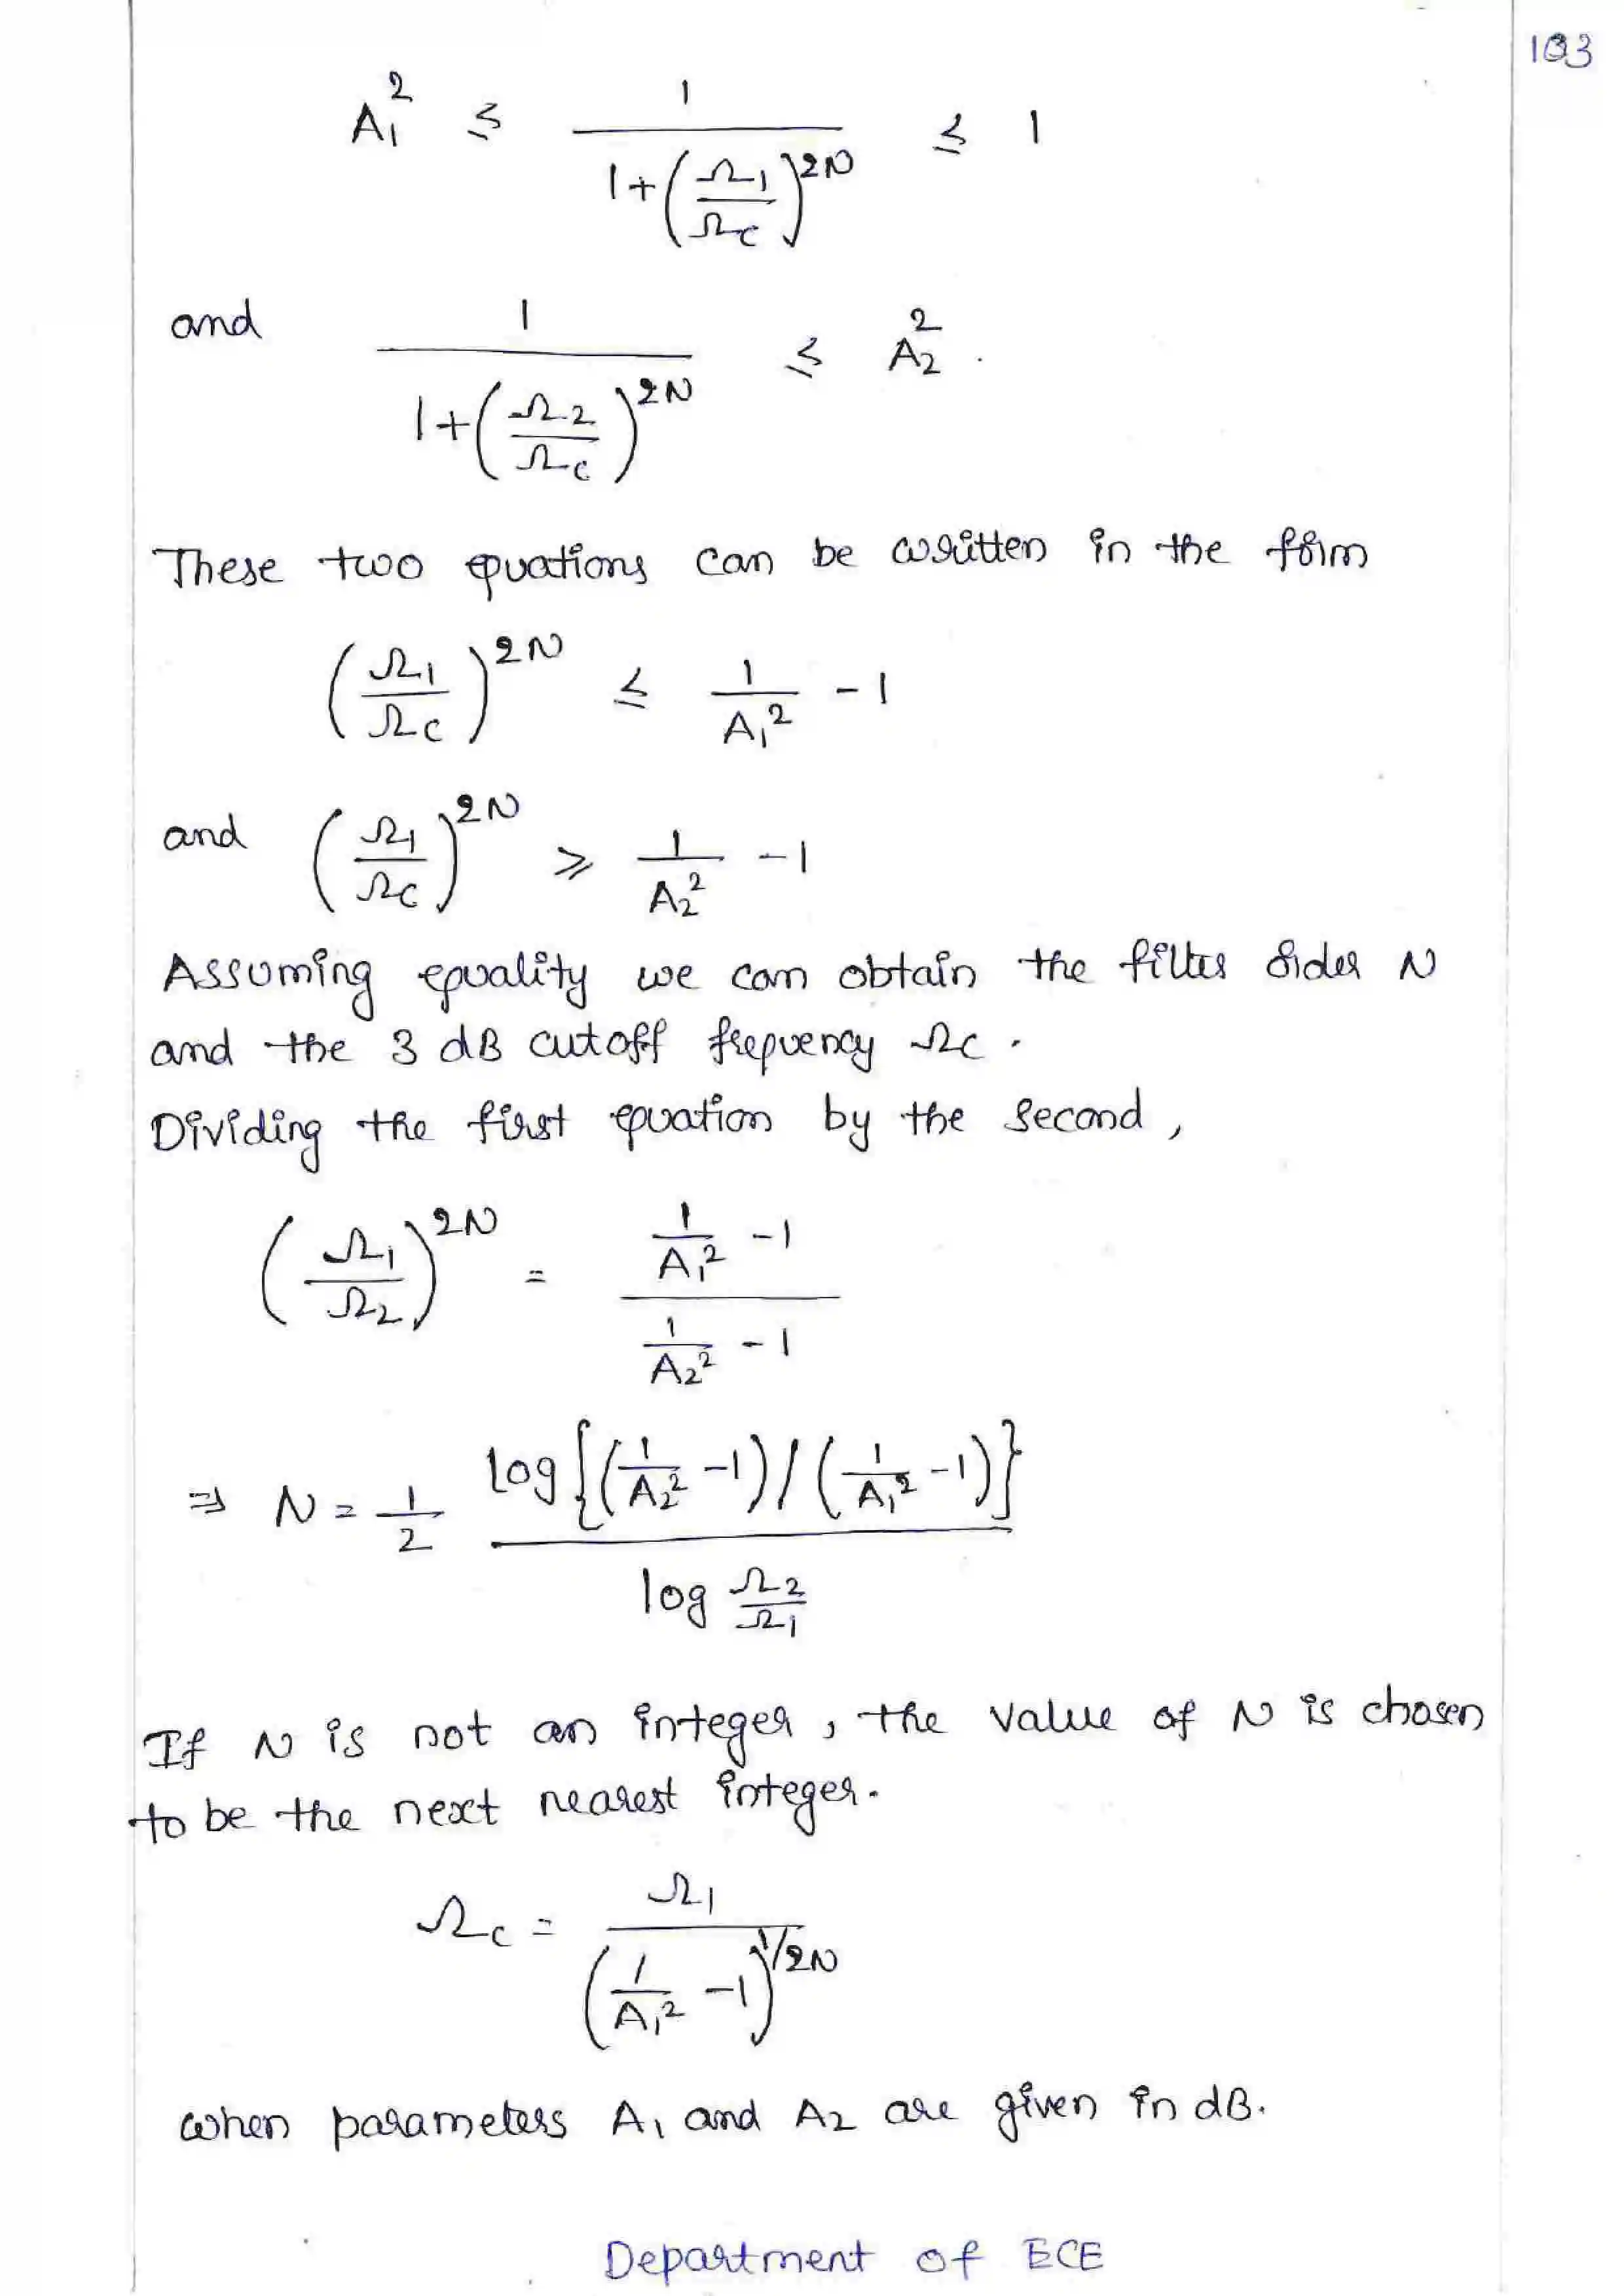 103
A₁² ≤ 1 / (1+(Ω₁/Ωc)^2N) ≤ 1
and 1 / (1+(Ω₂/Ωc)^2N) ≤ A₂².
These two equations can be written in the form
(Ω₁/Ωc)^2N ≤ 1/A₁² - 1
and (Ω₁/Ωc)^2N ≥ 1/A₂² - 1
Assuming equality we can obtain the filter order N
and the 3 dB cutoff frequency Ωc.
Dividing the first equation by the second,
(Ω₁/Ω₂)^2N = (1/A₁² - 1) / (1/A₂² - 1)
⇒ N = 1/2 log{(1/A₂² - 1)/(1/A₁² - 1)} / log Ω₂/Ω₁
If N is not an integer, the value of N is chosen
to be the next nearest integer.
Ωc = Ω₁ / (1/A₁² - 1)^1/2N
when parameters A₁ and A₂ are given in dB.
Department of ECE